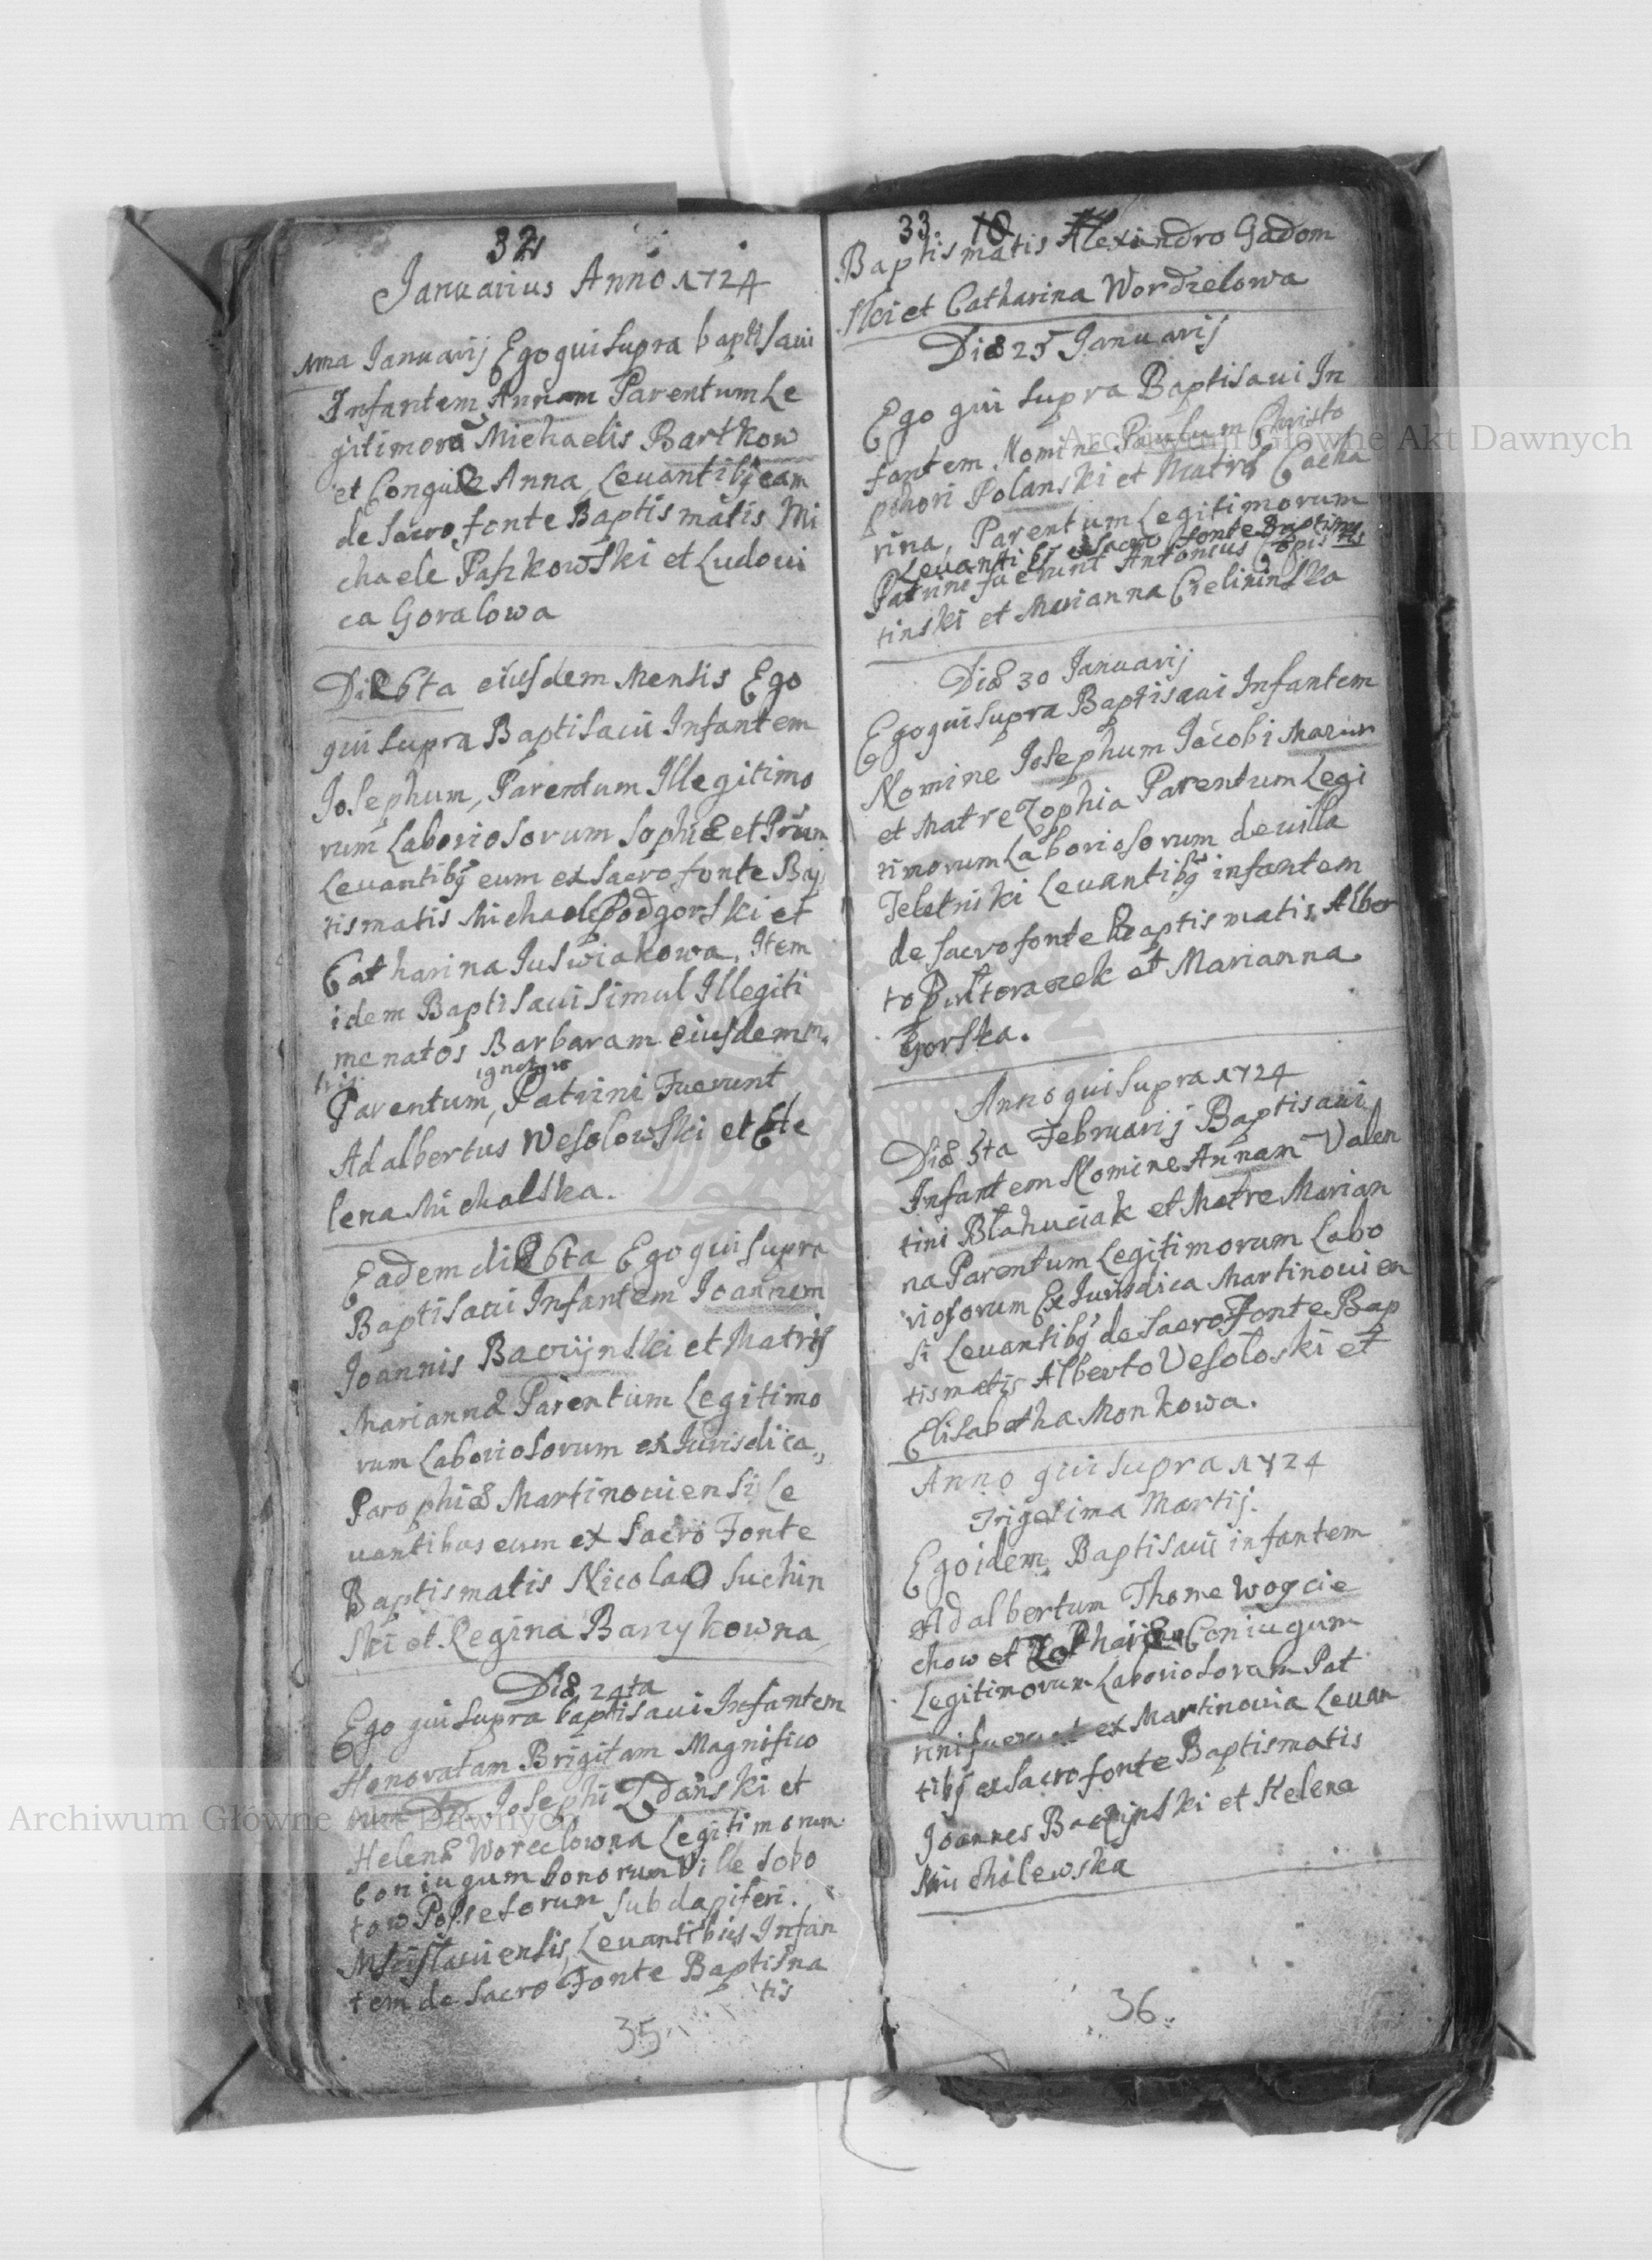 32
Januarius Anno 1724
1ma Januarij Ego qui supra baptisaui
Infantem Annam Parentum Le
gitimorū Michaelis Bartkow
et Anna, Leuantibq eam
de sacro fonte Baptismatis Mi
chaele Paszkowski et Ludoui
ca Goralowa
Die 6ta eiusdem Mensis Ego
qui supra Baptisaui Infantem
Josephum, Parentum Illegitimo
rum Laboriosorum Sophiæ et
Leuantibq eum ex sacro fonte Bap
tismatis Michaele Podgorski et
Catharina Juswiakowa, Item
idem Baptisaui simul Illegiti
me natos Barbaram eiusdem
Parentum, Patrini Fuerunt
Adalbertus Wesolowski et He
lena Michalska.
Eadem die 6ta Ego qui supra
Baptisaui Infantem Joannem
Joannis Baczijnski et Matris
Marianna Parentum Legitimo
rum Laboriosorum ex Jurisdica
Parophiæ Martinouiensi Le
uantibus eum ex sacro Fonte
Baptismatis Nicolao Suchin
ski et Regina Barzykowna
Die 24ta
Ego qui supra baptisaui Infantem
Honoratam Brigitam Magnifico
Josephi Zdanski et
Helenæ Worcelowna Legitimorum
Coniugum bonorum Ville Sobo
tow Possesorum subdapiferi
Mscislauiensis, Leuantibus Infan
tem de sacro Fonte Baptisma
tis
35
33. 10
Baptismatis Alexandro Gadom
ski et Catharina Wordzelowa
Die 25 Januarij
Ego qui supra Baptisaui In
fantem Nomine Paulum Christo
phori Polanski et Matris Catha
rina, Parentum Legitimorum
Leuantibq e sacro fonte Baptisma
tis
Patrini fuerunt Antonius Opis
tinski et Marianna Cielininska
Die 30 Januarij
Ego qui supra Baptisaui Infantem
Nomine Josephum Jacobi Mazur
et Matre Zophia Parentum Legi
timorum Laboriosorum de uilla
Jeletniki Leuantibq infantem
de sacro fonte Baptismatis Alber
to Pultoraczek et Marianna
Gorska.
Anno qui supra 1724
Die 5ta Februarij Baptisaui
Infantem Nomine Annam Valen
tini Blahuciak et Matre Marian
na Parentum Legitimorum Labo
riosorum Ex Jurisdica Martinouien
si Leuantibq de sacro Fonte Bap
tismatis Alberto Vesoloski et
Elisabetha Monkowa.
Anno qui supra 1724
Trigesima Martij.
Ego idem Baptisaui infantem
Adalbertum Thome Woycie
chow et Coniugum
Legitimorum Laboriosorum Pat
rini fuerunt ex Martinouia Leuan
tibq ex sacro fonte Baptismatis
Joannes Baczijnski et Helena
Michilewska
36
Archiwum Główne Akt Dawnych
Archiwum Główne Akt Dawnych